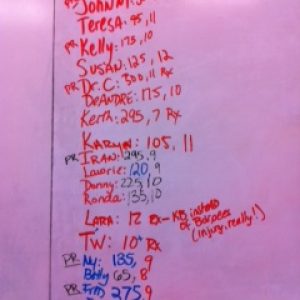 PR JOHNNY:
TERESA: 95, 11
PR Kelly: 175, 10
SUSAN: 125, 12
PR Dr. C: 300, 11 Rx
DEANDRE: 175, 10
Keith: 295, 7 Rx
KARYN: 105, 11
PR IRAN: 295, 9
Laurie: 120, 9
Donny: 225, 10
Ronda: 135, 10
LARA: 12 Rx - KB instead
of Burpees
(injury, really!)
TW: 10 Rx
PR My: 135, 9
Betty 65, 8
PR Fritz 275, 9